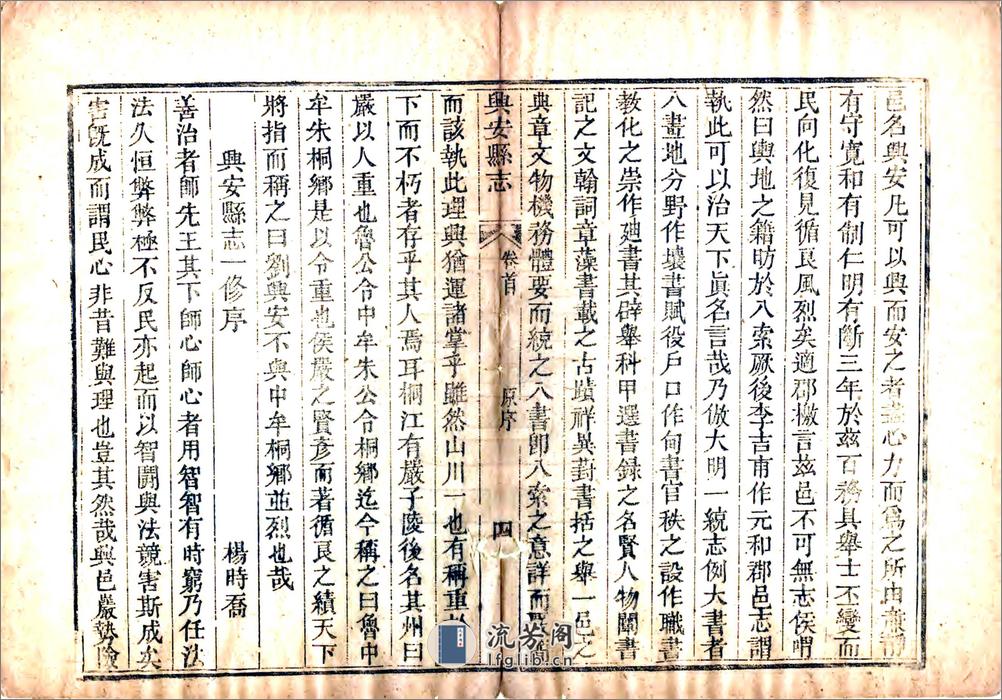 邑名興安凡可以興而安之者盡心力而爲之所由
有守寬和有制仁明有斷三年於兹百務具舉士丕變而
民向化復見循良風烈矣適郡檄言兹邑不可無志侯喟
然曰輿地之籍昉於八索厥後李吉甫作元和郡邑志謂
執此可以治天下眞名言哉乃倣大明一統志例大書者
八畫地分野作壤書賦役戶口作甸書官秩之設作職書
教化之崇作廸書其辟舉科甲選書録之名賢人物關書
記之文翰詞章藻書載之古蹟祥異對書括之舉一邑之
典章文物機務體要而統之八書卽八索之意詳而
興安縣志 卷首 原序 四
而該執此理興猶運諸掌乎雖然山川一也有稱重
下而不朽者存乎其人焉耳桐江有嚴子陵後名其州曰
嚴以人重也魯公令中牟朱公令桐鄉迄今稱之曰魯中
牟朱桐鄉是以令重也侯嚴之賢彥而著循良之績天下
將指而稱之曰劉興安不與中牟桐鄉並烈也哉
興安縣志一修序 楊時喬
善治者師先王其下師心師心者用智智有時窮乃任法
法久恒弊弊極不反民亦起而以智鬪與法競害斯成矣
害旣成而謂民心非昔難與理也豈其然哉興邑巖
流芳阁
lfglib.cn